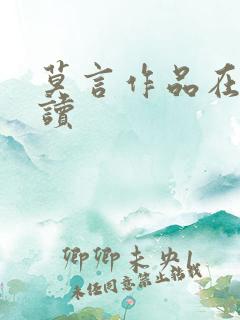 莫言作品在
讀
卿卿未央|
未经同意禁止转载